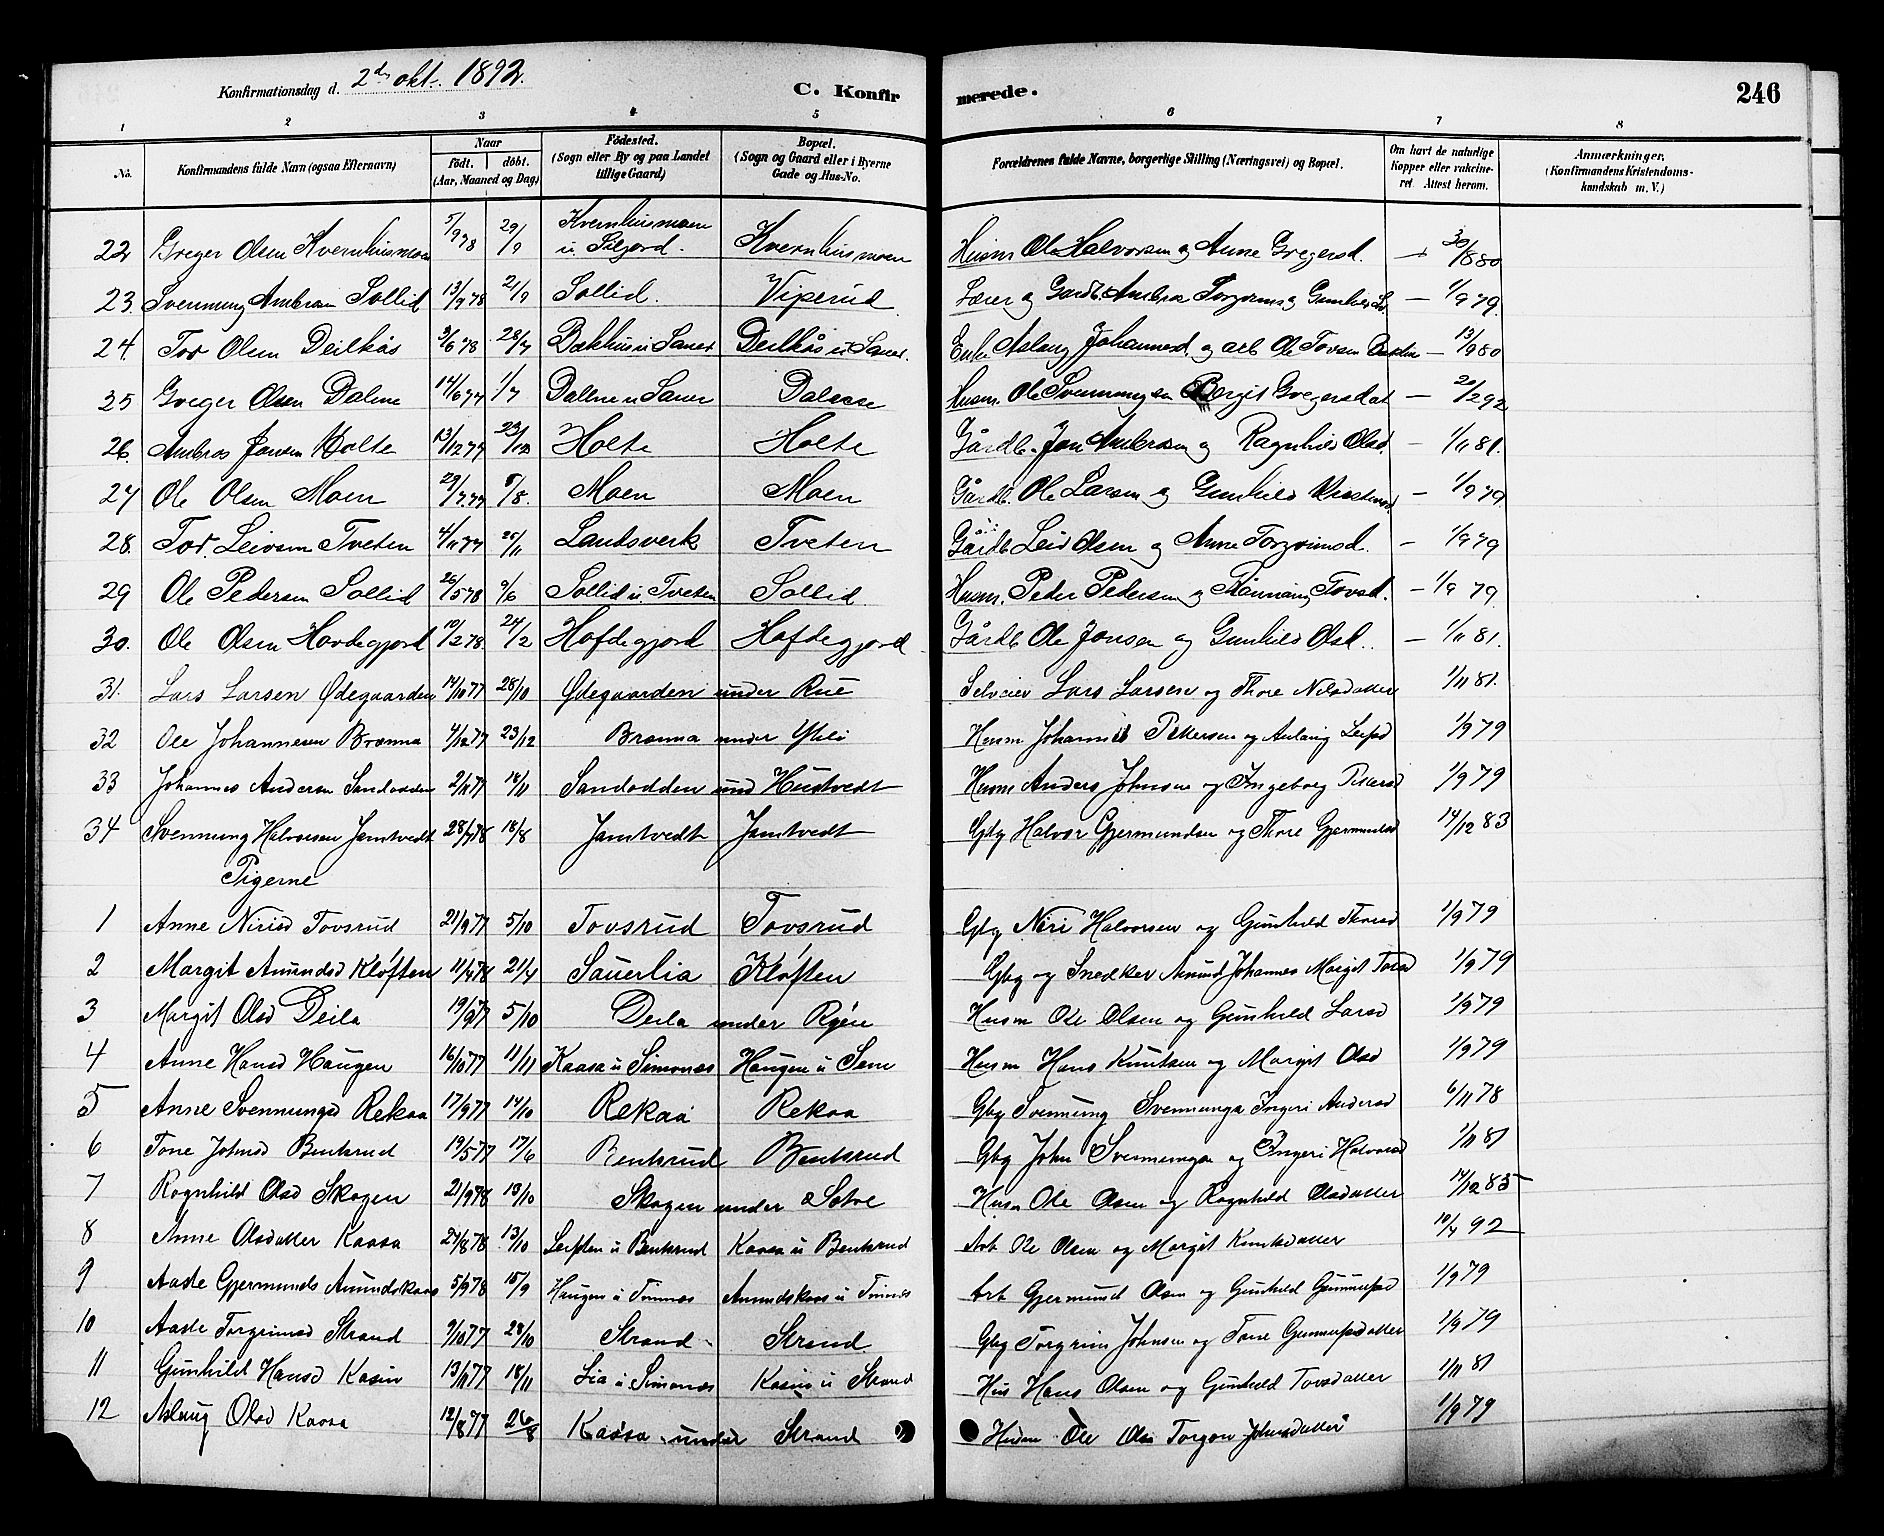 Konfirmationsdag d. 2den okt. 1892.
C. Konfirmerede.
246
1 2 3 4 5 6 7 8
No. Konfirmandens fulde Navn (ogsaa Efternavn) Naar født. døbt. (Aar, Maaned og Dag) Fødested. (Sogn eller By og paa Landet tillige Gaard) Bopæl. (Sogn og Gaard eller i Byerne Gade og Hus-No. Forældrenes fulde Navne, borgerlige Stilling (Næringsvei) og Bopæl. Om havt de naturlige Kopper eller vakcineret. Attest herom. Anmærkninger, (Konfirmandens Kristendomskundskab m. V.)
22 Greger Olsen Kvernhusmoen 5/9 78 29/9 Kvernhusmoen u. Siljord. Kvernhusmoen Husm Ole Halvorsen og Anne Gregersd. 30/8 80
23. Svennung Ambrosen Sollid 13/9 78 21/9 Sollid. Viperud Lærer og Gardb. Ambros Torgrims og Gunhild — 1/9 79.
24. Tor Olsen Deilkås 3/6 78 28/7 Bakhus u Sauer Deilkås u Sauer. Enke Aslaug Johannesd. og arb Ole Tovsen — 13/9 80
25 Greger Olsen Dalene 14/6 77 1/7 Dalene u Sauer Dalene Husm. Ole Svennungsen Bergit Gregersdat — 20/2 92
26. Ambros Jonsen Holte 13/12 77 23/12 Holte Holte Gårdb. Jon Ambrosen og Ragnhild Olsd. — 1/11 81.
27 Ole Olsen Moen 29/7 77 5/8. Moen Moen Gårdb. Ole Larsen og Gunhild Kristensd — 1/9 79.
28. Tor Leivsen Tveten 4/11 77 25/11 Landsverk Tveten Gårdb Leiv Olsen og Anne Torgrimsd. — 1/9 79
29 Ole Pedersen Sollid 26/5 78 9/6 Sollid u. Tveten Sollid. Husm. Peder Pedersen og Tovsd. — 1/9 79
30. Ole Olsen Hovdegjord 10/2 78. 24/2 Hofdegjord Hofdegjord Gårdb Ole Jonsen og Gunhild Olsd. — 1/11 81.
31. Lars Larsen Ødegaarden 14/10 77 28/10 Ødegaarden under Rue Selveier Lars Larsen og Thore Nilsdatter 1/11 81.
32 Ole Johannesen Brænna 4/12 77 23/12 Brænna under Husm Johannes Pettersen og Aslaug Leifsd 1/9 79
33 Johannes Andersen Sandodden 2/11 77 18/11 Sandodden und Hustvedt Husm Anders Johnsen og Ingeborg Pettersd 1/9 79
34 Svennung Halvorsen Jamtvedt 28/7 78 18/8 Jamtvedt Jamtvedt Gbg Halvor Gjermundsen og Thore Gjermundsd 14/12 83
Pigerne
1 Anne Nirisd Tovsrud 21/9 77 5/10 Tovsrud Tovsrud Gbg Niri Halvorsen og Gunhild Thorsd 1/9 79
2 Margit Amundsd Kløften 11/4 78 21/4 Sauerlia Kløften Gbg og Snedker Amund Johannes Margit Torsd 1/9 79
3 Margit Olsd Deila 19/9 77 5/10 Deila under Ryen Husm Ole Olsen og Gunhild Larsd 1/9 79
4 Anne Hansd Haugen 16/10 77 11/11 Kaasa u Simonæs Haugen u Sem Husm Hans Knutsen og Margit Olsd 1/9 79
5 Anne Svennungsd Rekaa 17/9 77 14/10 Rekaa Rekaa Gbg Svennung Svennungs Ingeri Andersd 6/11 78
6 Tone Johnsd Bentsrud 19/5 77 17/6 Bentsrud Bentsrud Gbg John Svennungsen og Ingeri Halvorsd 1/11 81
7 Ragnhild Olsd Skogen 21/9 78 13/10 Skogen under Sotve Husm Ole Olsen og Ragnhild Olsdatter 14/12 85
8 Anne Olsdatter Kaasa 24/8 78. 13/10 u Bentsrud Kaasa u Bentsrud Arb Ole Olsen og Margit Knutsdatter 10/4 92
9 Aaste Gjermunds Amundskaas 5/9 78 15/9 Haugen u Tinnæs Amundskaas u Tinnæs Arb Gjermund Olsen og Gunhild 1/9 79
10 Aaste Torgrimsd Strand 9/10 77 28/10 Strand Strand Gbg Torgrim Johnsen og Tone Gunnulfsdatter 1/9 79
11 Gunhild Hansd Kasin 13/11 77 18/11 Lia u Simonæs Kasin u Strand Hus Hans Olsen og Gunhild Torsdatter 1/11 81
12 Aslaug Olsd Kaasa 12/8 77 26/8 Kaasa under Strand Husm Ole Olsen Torgon Johnsdatter 1/9 79